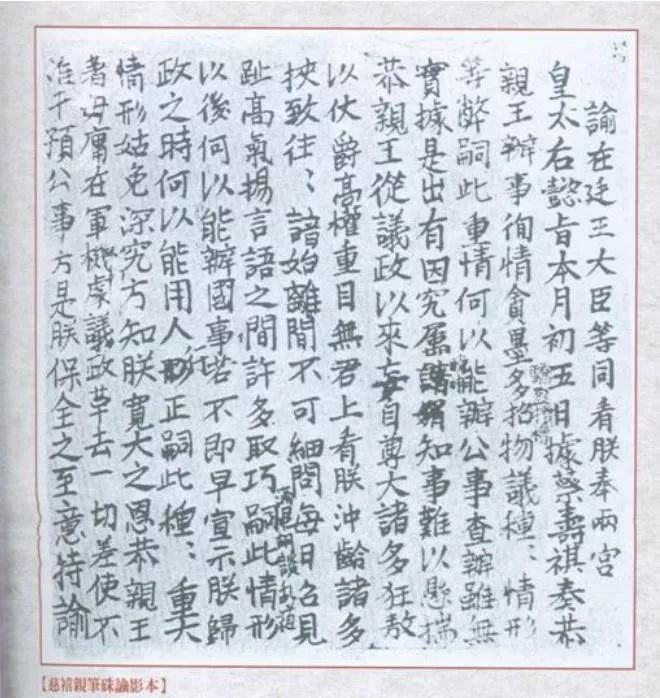 諭在廷王大臣等同看朕奉兩宮
皇太后懿旨本月初五日據蔡壽祺奏恭
親王辦事徇情貪墨多招物議種〻情形
等弊嗣此重情何以能辦公事查辦雖無
實據是出有因究屬知事難以懸揣
恭親王從議政以來妄自尊大諸多狂敖
以仗爵高權重目無君上看朕沖齡諸多
挾致往〻諳始離間不可細問每日召見
趾高氣揚言語之間許多取巧嗣此情形
以後何以能辦國事若不即早宣示朕歸
政之時何以能用人行正嗣此種〻重大
情形姑免深究方知朕寬大之恩恭親王
著毋庸在軍機處議政革去一切差使不
准干預公事方是朕保全之至意特諭
【慈禧親筆硃諭影本】